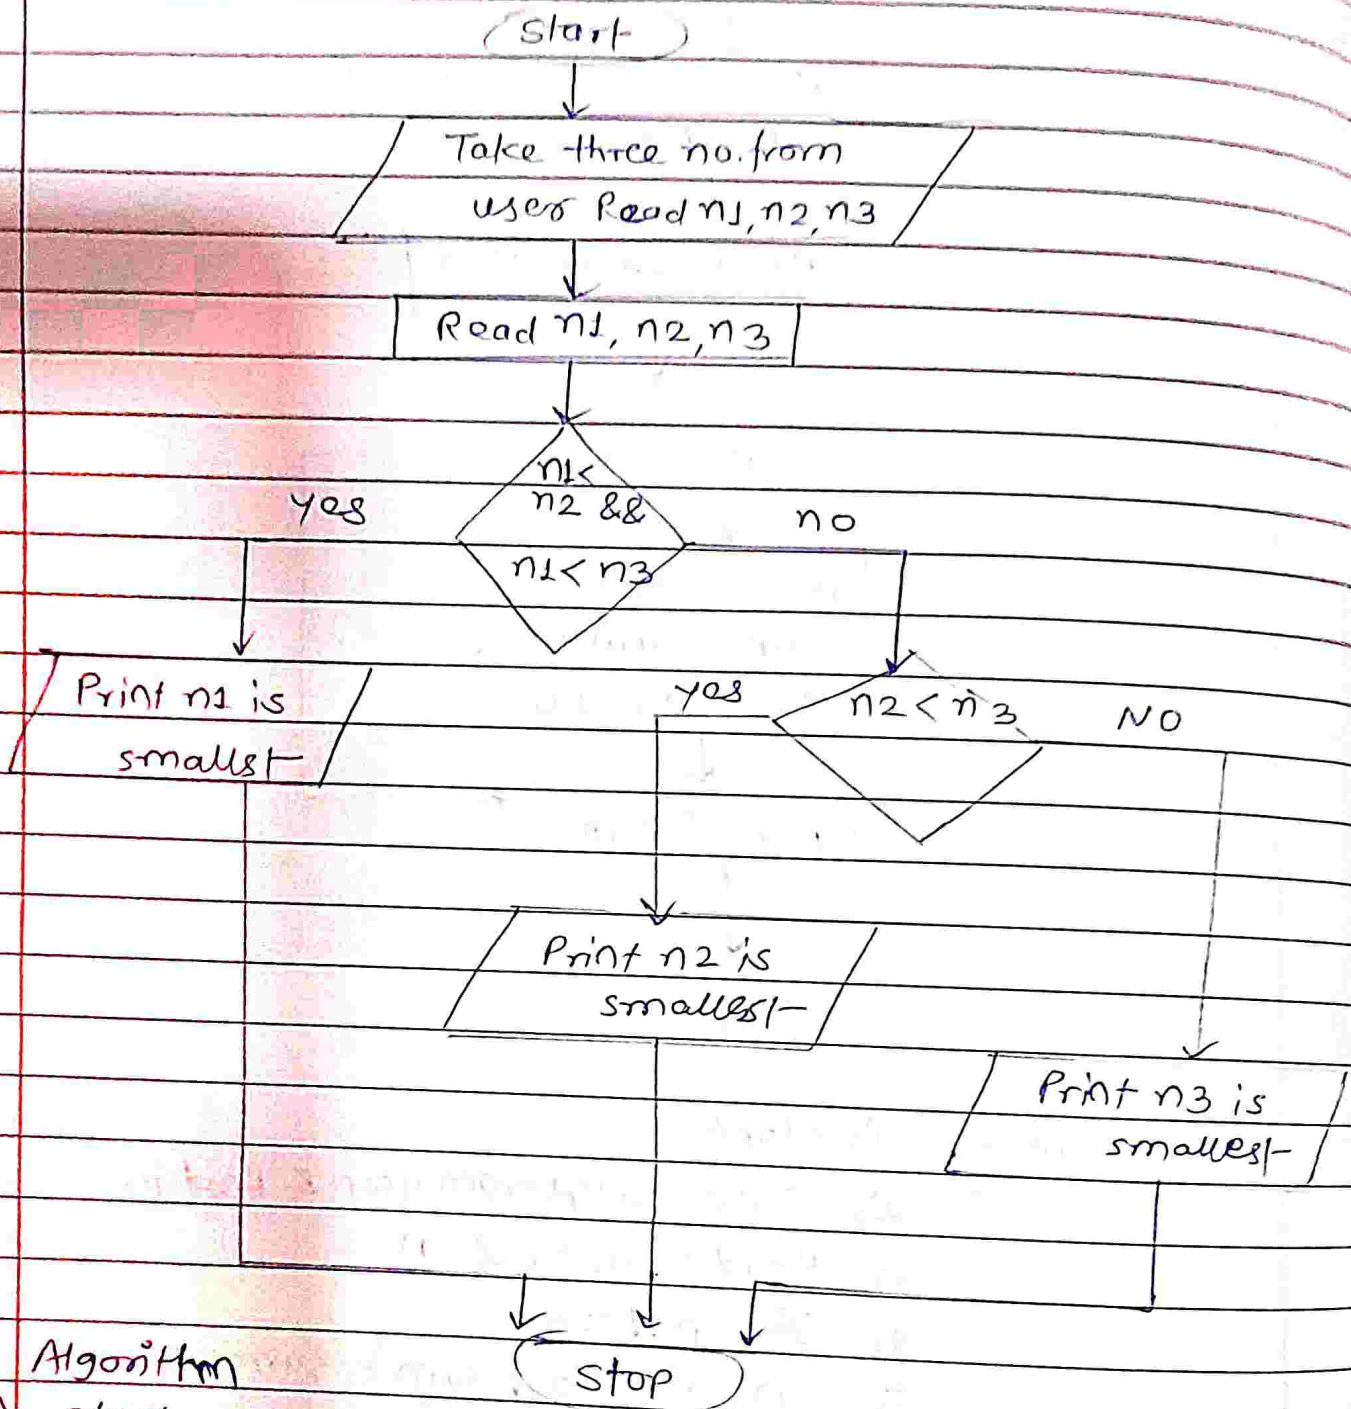 Start
Take three no. from
user Read n1, n2, n3
Read n1, n2, n3
n1<
n2 &&
n1< n3
yes
no
Print n1 is
smallst
n2 < n3
yes
NO
Print n2 is
smallest
Print n3 is
smallest
Stop
Algorithm